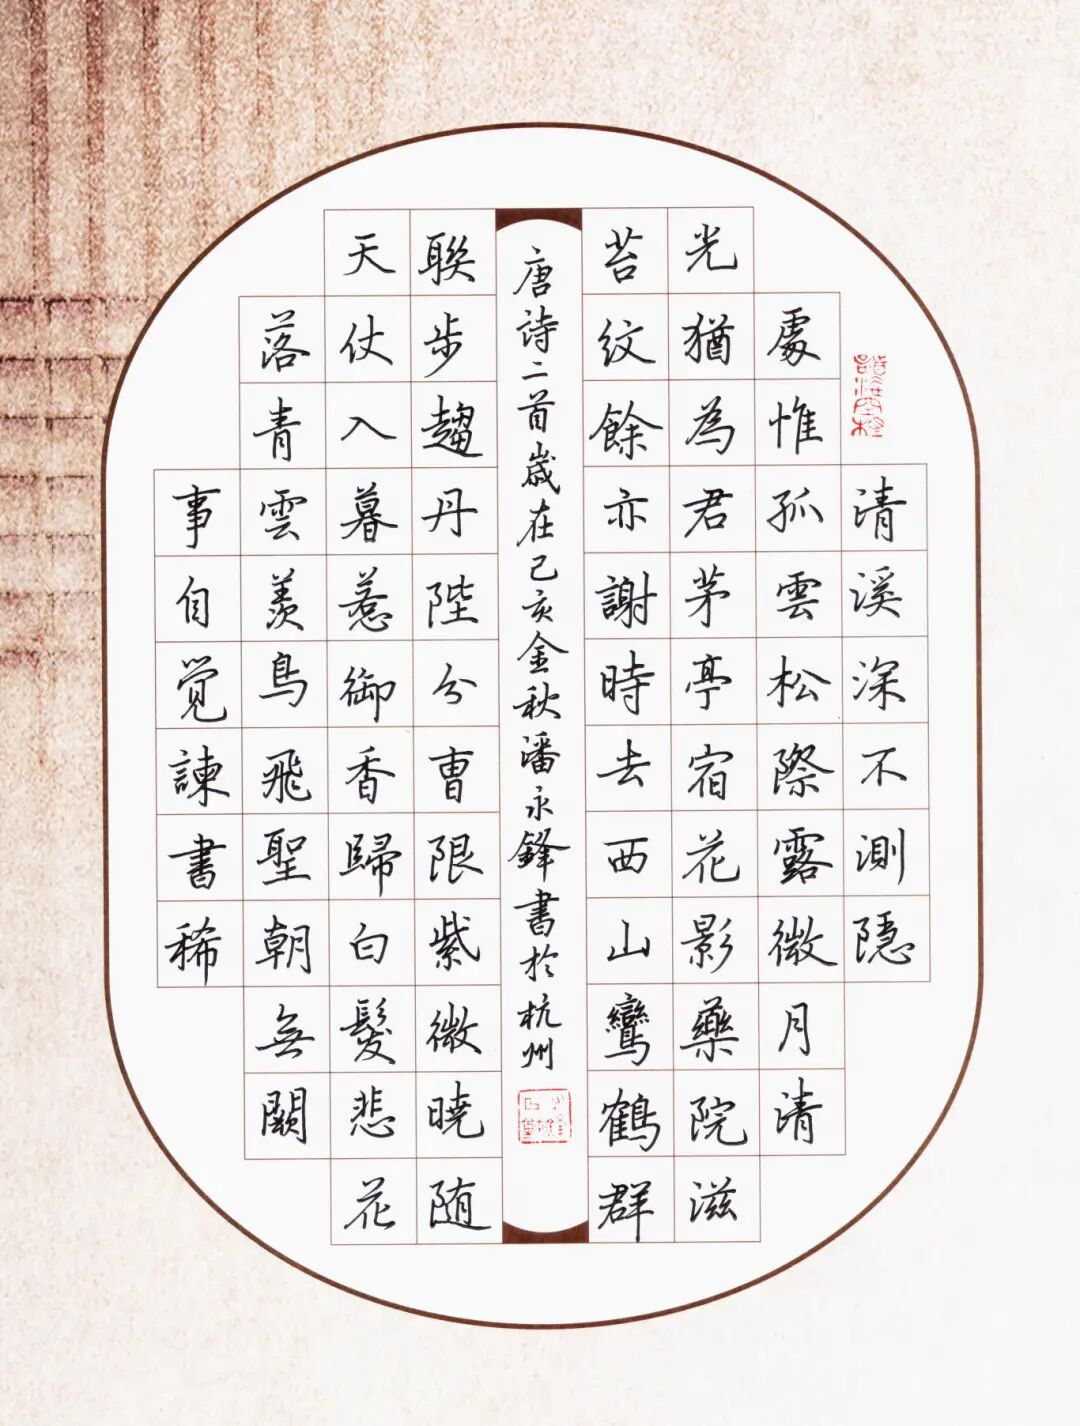 清溪深不測隱
處惟孤雲松際露微月清
光猶為君茅亭宿花影藥院滋
苔紋餘亦謝時去西山鸞鶴群
唐詩二首嵗在己亥金秋潘永鋒書於杭州
聯步趨丹陛分曹限紫微暁随
天仗入暮惹御香歸白髮悲花
落青雲羨鳥飛聖朝無闕
事自覚諫書稀